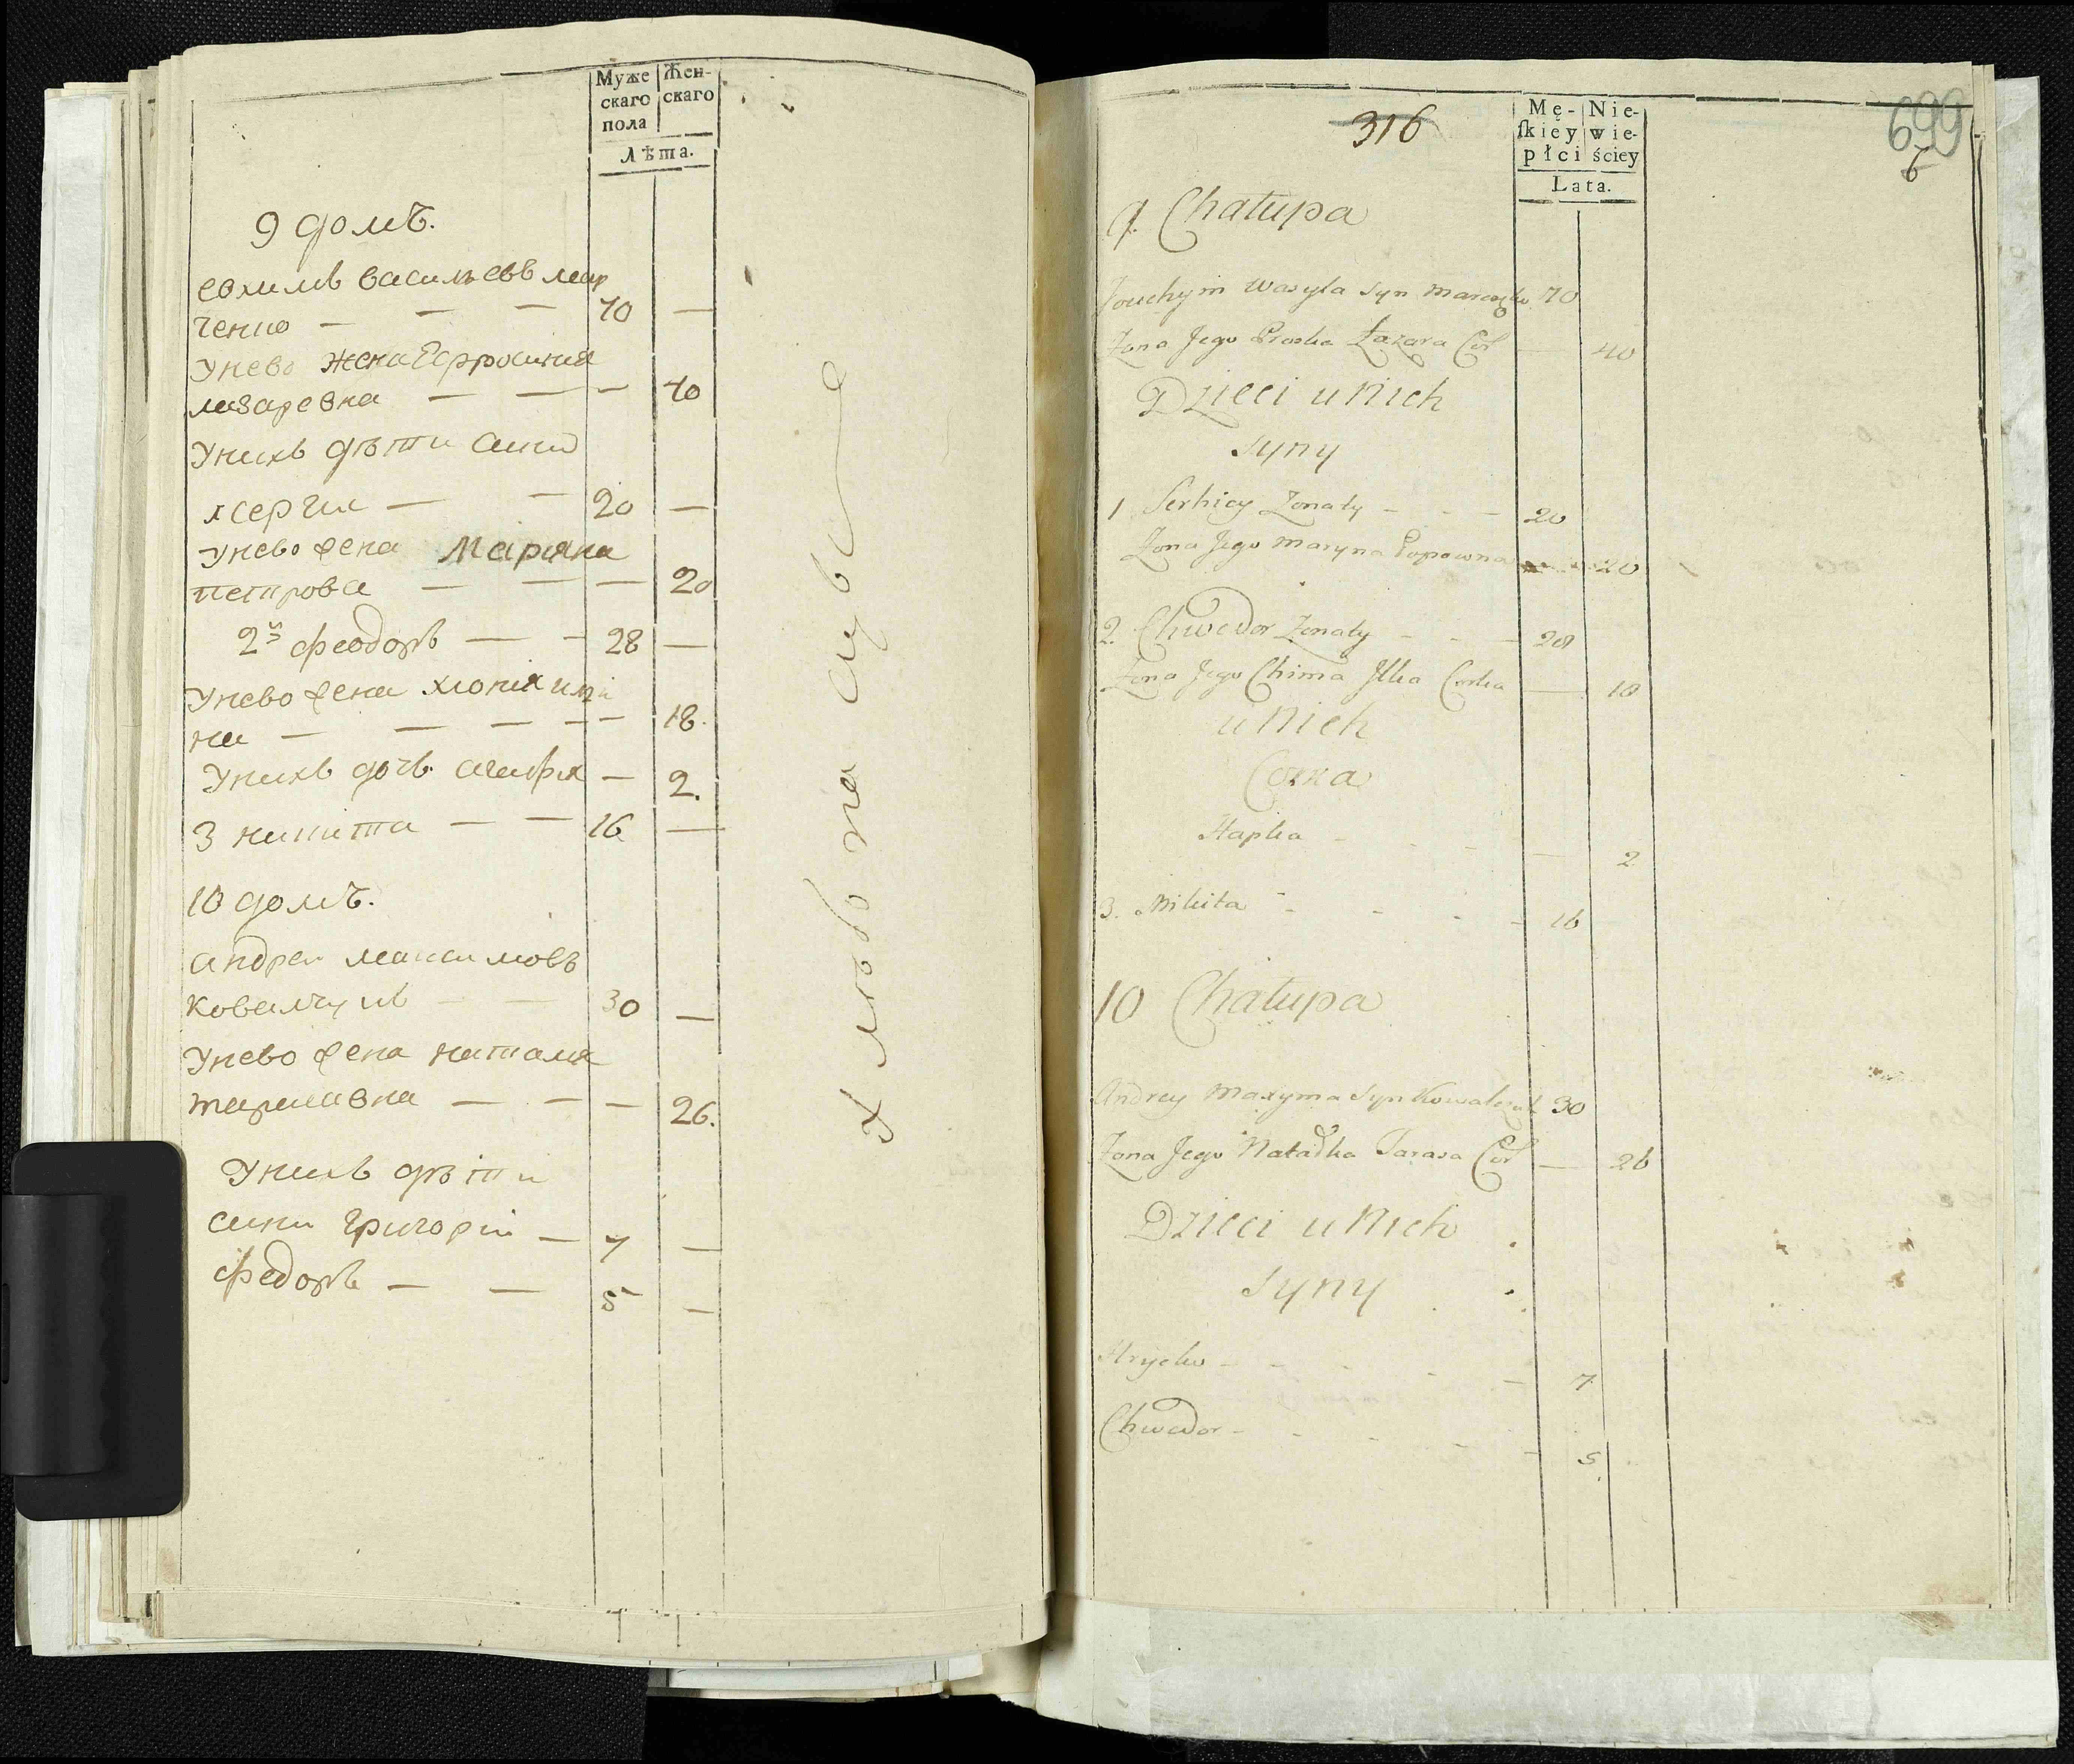 Муже Жен-
скаго скаго
пола
Лѣта.
9 домъ.
евхимъ васильевъ мар
ченко — — — 70 —
унево жена Ефросиния
лазаревна — — — 40
унихъ дѣти сини
1 сергия — — 20 —
унево жена Марияна
петрова — — — 20
2й феодоръ — — 28 —
унево жена
на — — — — — 18.
унихъ дочь агафия — 2.
3 никита — — 16 —
10 домъ.
андрей максимовъ
ковалчукъ — — 30 —
унево жена наталия
тарасавна — — — 26.
унихъ дѣти
сини григорій — 7 —
федоръ — — 5 —
316
699
6
Mę- Nie-
ſkiey wie-
płci ściey
Lata.
9. Chałupa
Jouchym Wasyla Syn Marczenko 70
Zona Jego Proska Łazara Cor — 40
Dzieci u Nich
Syny
1 Serhiey Zonaty - - - 20
Zona Jego Maryna 20
2. Chwedor Zonaty - - - 28
Zona Jego Chima Jlka Corka — 18
u Nich
Corka
Hapka - - - - — 2
3. Mikita - - - - - 16
10 Chałupa
Andrey Maxyma Syn Kowalczuk 30
Zona Jego Natałka Tarasa Cor — 26
Dzieci u Nich
Syny
Hryćko - - - - — 7
Chwedor - - - - - 5